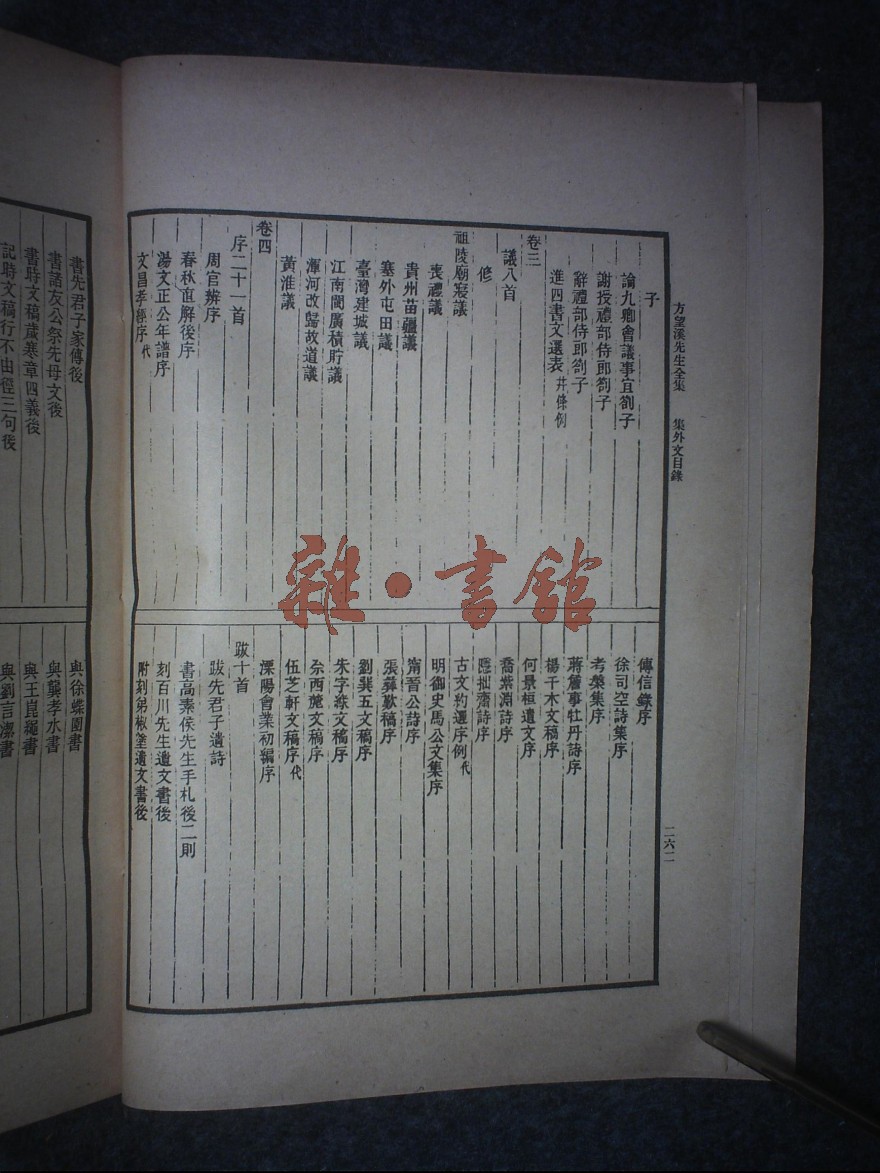 方望溪先生全集 集外文目錄
二六二
子
論九卿會議事宜劄子
謝授禮部侍郎劄子
辭禮部侍郎劄子
進四書文選表 并條例
卷三
議八首
修
祖陵廟寢議
喪禮議
貴州苗疆議
塞外屯田議
臺灣建城議
江南閩廣積貯議
渾河改歸故道議
黃淮議
卷四
序二十一首
周官辨序
春秋直解後序
湯文正公年譜序
文昌孝經序 代
傳信錄序
徐司空詩集序
考槃集序
蔣詹事牡丹詩序
楊千木文稿序
何景桓遺文序
喬紫淵詩序
隱拙齋詩序
古文約選序例 代
明御史馬公文集序
甯晉公詩序
張彝歎稿序
劉巽五文稿序
朱字綠文稿序
余西麓文稿序
伍芝軒文稿序 代
溧陽會業初編序
跋十首
跋先君子遺詩
書高素侯先生手札後二則
刻百川先生遺文書後
附刻弟椒塗遺文書後
書先君子家傳後
書諸友公祭先母文後
書時文稿歲寒章四義後
記時文稿行不由徑三句後
與徐蝶園書
與龔孝水書
與王崑繩書
與劉言潔書
雜·書館